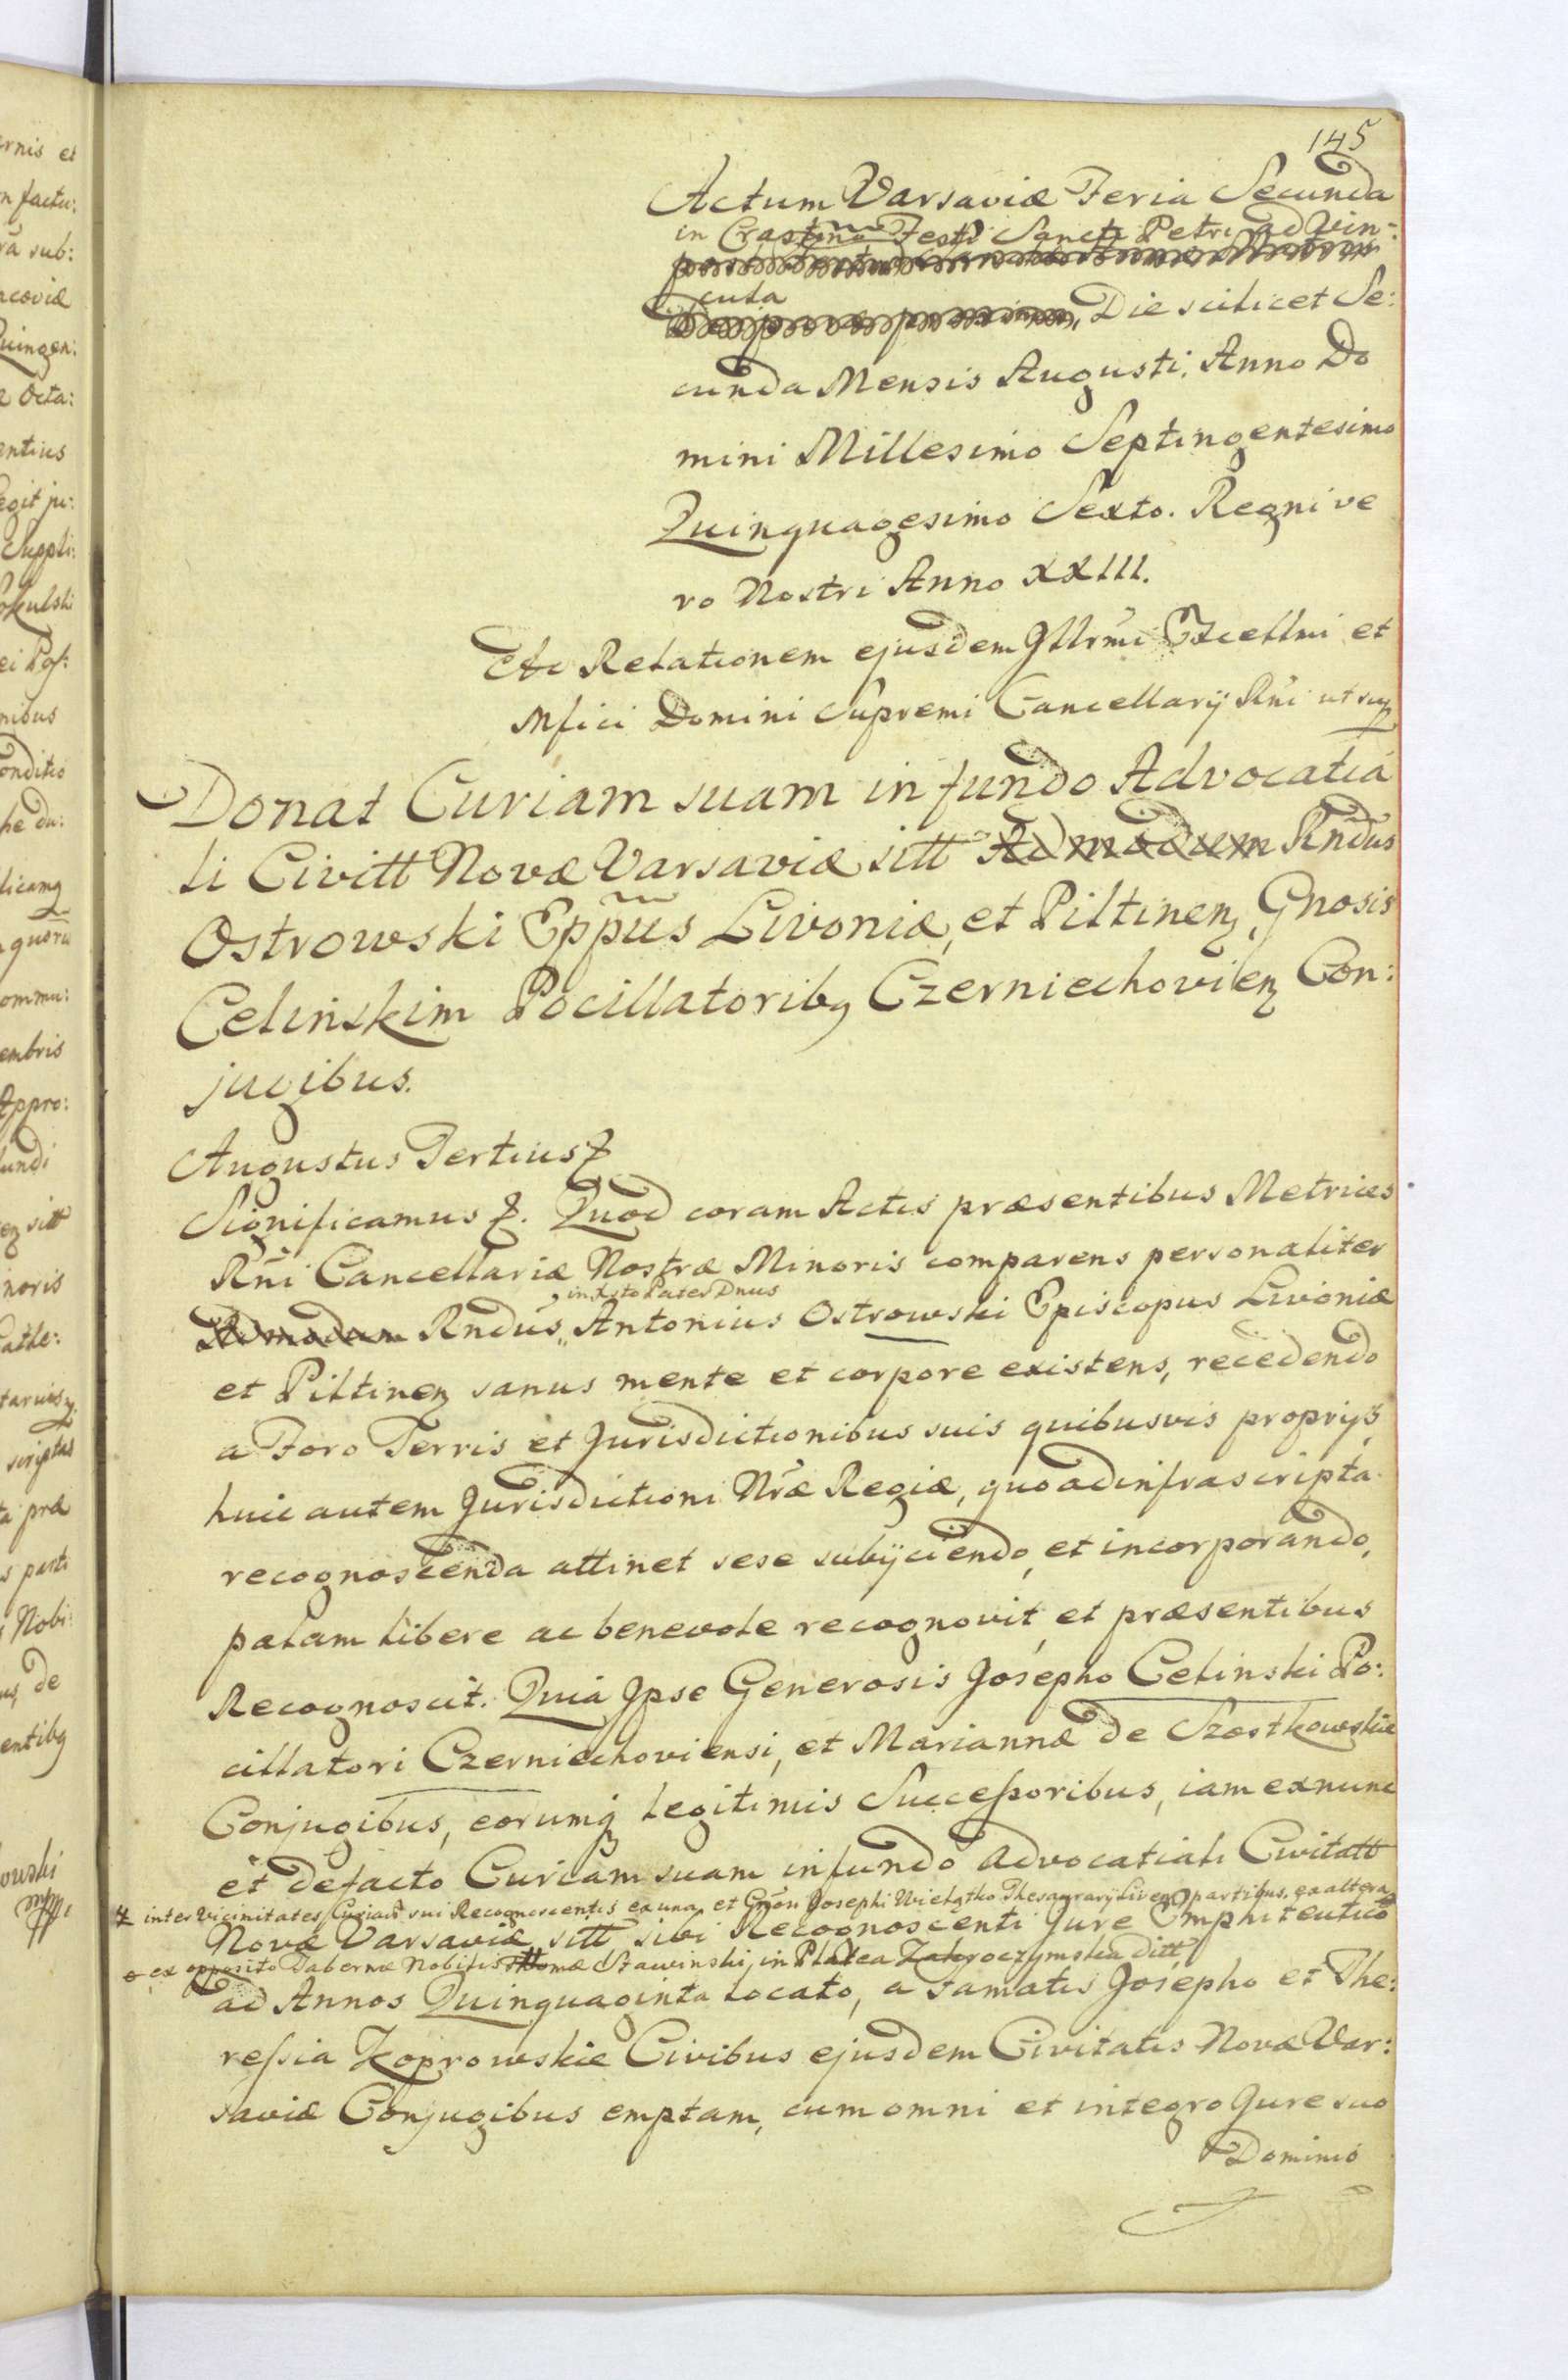 145
Actum Varsaviæ Feria Secunda
in Crastino Festi Sancti Petri ad Vin-:
cula
Die scilicet Se:
cunda Mensis Augusti. Anno Do
mini Millesimo Septingentesimo
Quinquagesimo Sexto. Regni ve
ro Nostri Anno XXIII.
Relationem ejusdem Illrmi Excellmi et
Mfici Domini Supremi Cancellarij Rni ut sup
Donat Curiam suam in fundo Advocatia
li Civitt Novæ Varsaviæ sitt Admodum Rndus
Ostrowski Eppus Livoniæ, et Piltinen, Gnosis
Celinskim Pocillatoribq Czerniechovien Con:
jugibus.
Augustus Tertius
Significamus. Quod coram Actis præsentibus Metrices
Rni Cancellariæ Nostræ Minoris comparens personaliter
in Xsto Pater Dnus
Admodum Rndus, Antonius Ostrowski Episcopus Livoniæ
et Piltinen sanus mente et corpore existens, recedendo
a Foro Terris et Jurisdictionibus suis quibusvis proprijs,
huic autem Jurisdictioni Nræ Regiæ, quo ad infrascripta
recognoscenda attinet sese subijciendo, et incorporando,
palam libere ac benevole recognovit, et præsentibus
Recognoscit. Quia Ipse Generosis Josepho Celinski Po:
cillatori Czerniechoviensi, et Mariannæ de Szostkowskie
Conjugibus, eorumq legitimis Successoribus, iam ex nunc
et de facto Curiam suam in fundo Advocatiali Civitatt
inter Vicinitates Curiarū sui Recognoscentis ex una, et Gnosi Josephi Wielątko Thesaurarij Liven partibus, ex altera
Novæ Varsaviæ sitt sibi Recognoscenti Jure Emphiteutico
ex opposito Tabernæ Nobilis Thomæ Stawinski, in Platea Zakroczymska ditt
ad Annos Quinquaginta locato, a Famatis Josepho et The:
ressia Koprowskie Civibus ejusdem Civitatis Novæ Var:
saviæ Conjugibus emptam, cum omni et integro Jure suo
Dominio